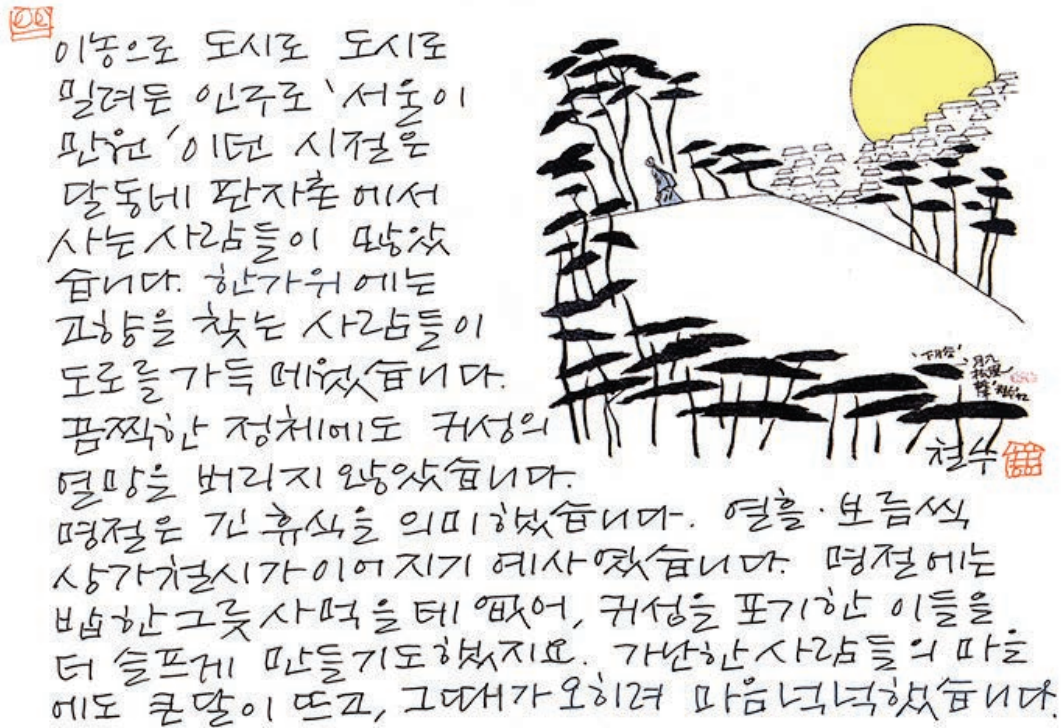 이농으로 도시로 도시로
밀려든 인구로 '서울이
만원'이던 시절은
달동네 판자촌에서
사는 사람들이 많았
습니다. 한가위에는
고향을 찾는 사람들이
도로를 가득 메웠습니다.
끔찍한 정체에도 귀성의
열망을 버리지 않았습니다.
명절은 긴 휴식을 의미했습니다. 열흘·보름씩
상가철시가 이어지기 예사였습니다. 명절에는
밥 한그릇 사먹을 데 없어, 귀성을 포기한 이들을
더 슬프게 만들기도 했지요. 가난한 사람들의 마을
에도 큰 달이 뜨고, 그때가 오히려 마음 넉넉했습니다
철수